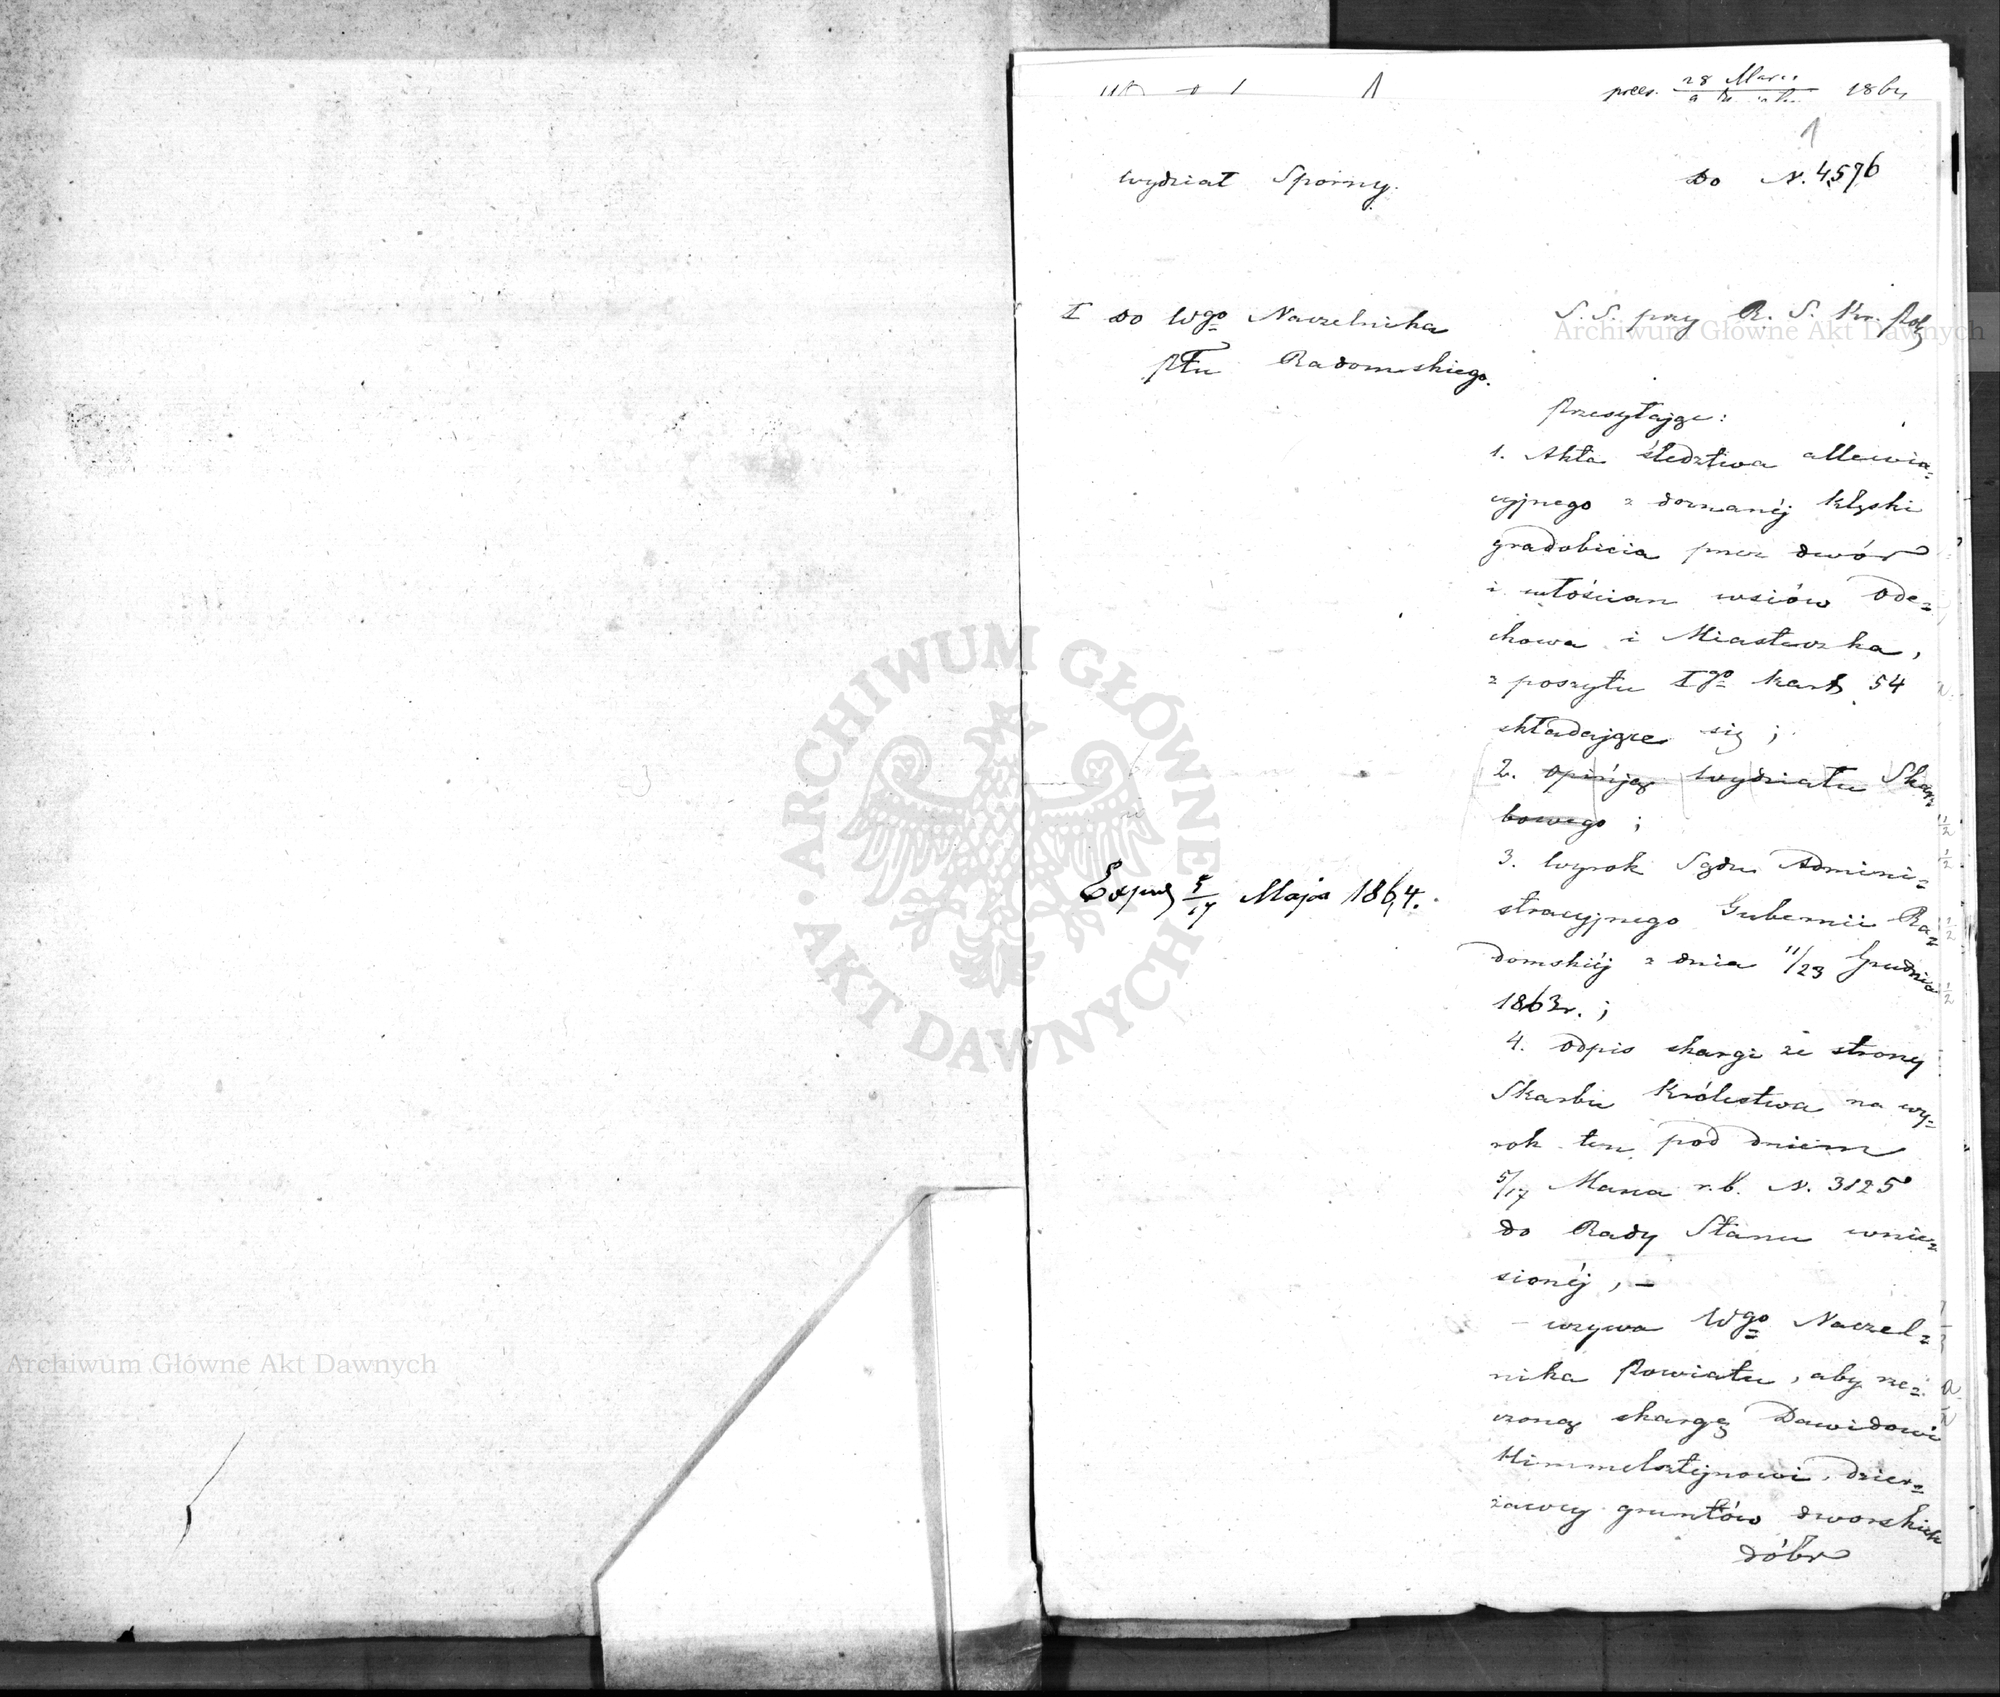 prez. 28 Marca 1864
1
Wydział Sporny.
Do N. 4576
I Do Wgo Naczelnika
Ptu Radomskiego.
S. S. przy R. S. Kr. Pol
Przesyłając:
1. Akta śledztwa allewia=
cyjnego z doznanéj klęski
gradobicia przez dwór
i włościan wsiów Ode=
chowa i Miasteczka,
z poszytu Igo kart 54
składające się;
2. Opiniją Wydziału Skar=
bowego;
3. Wyrok Sądu Admini=
stracyjnego Gubernii Ra=
domskiéj z dnia 11/23 Grudnia
1863r.;
4. Odpis skargi ze strony
Skarbu Królestwa na wy=
rok ten pod dniem
5/17 Marca r.b. N. 3125
do Rady Stanu wnie=
sionéj, –
– wzywa Wgo Naczel=
nika Powiatu, aby rze=
czoną skargę Dawidowi
Himmelsztejnowi, dzier=
żawcy gruntów dworskich
dóbr
Exped 5/17 Maja 1864.
ARCHIWUM GŁÓWNE AKT DAWNYCH
Archiwum Główne Akt Dawnych
Archiwum Główne Akt Dawnych